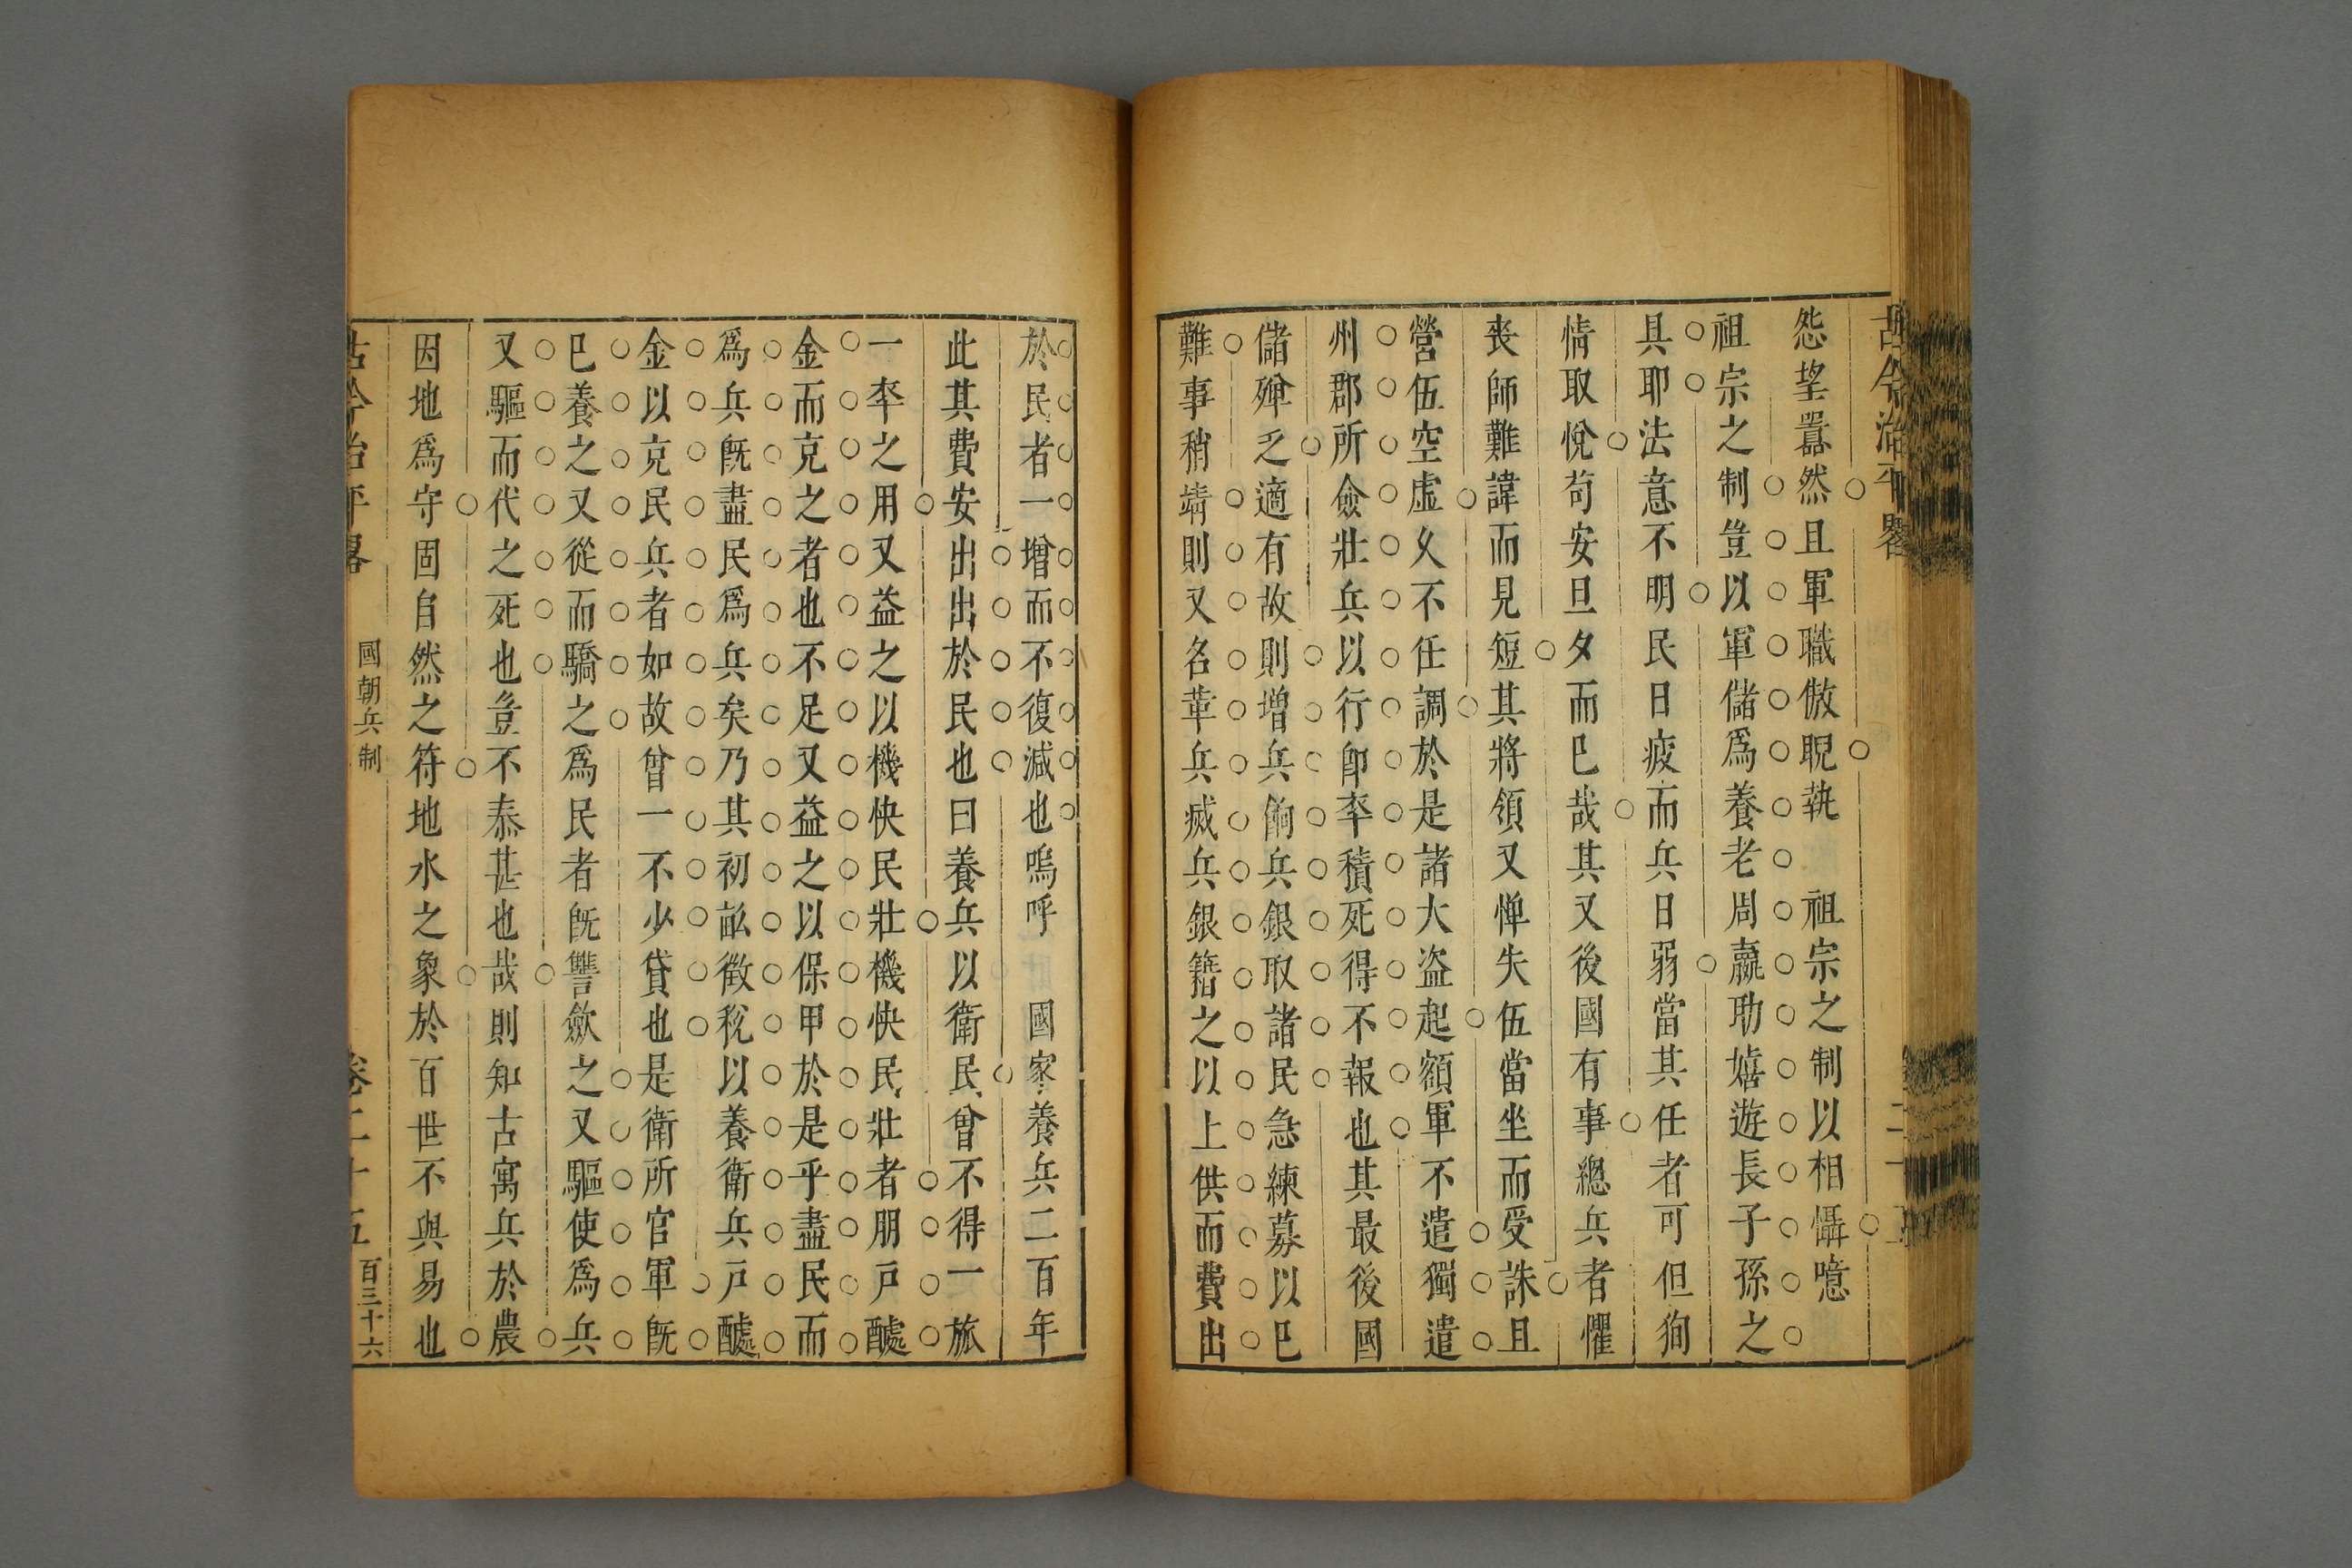 古今治平畧
怨望囂然且軍職傲睨執 祖宗之制以相懾噫
祖宗之制豈以軍儲爲養老周羸助嬉遊長子孫之
具耶法意不明民日疲而兵日弱當其任者可但狥
情取悅苟安旦夕而已哉其又後國有事總兵者懼
丧師難諱而見短其將領又憚失伍當坐而受誅且
營伍空虛久不任調於是諸大盜起額軍不遣獨遣
州郡所僉壯兵以行卽率積死得不報也其最後國
儲殫乏適有故則增兵餉兵銀取諸民急練募以已
難事稍靖則又名革兵減兵銀籍之以上供而費出
於民者一增而不復減也嗚呼 國家養兵二百年
此其費安出出於民也曰養兵以衛民曾不得一旅
一率之用又益之以機快民壯機快民壯者朋戸醵
金而克之者也不足又益之以保甲於是乎盡民而
爲兵旣盡民爲兵矣乃其初畝徵稅以養衛兵戸醵
金以克民兵者如故曾一不少貸也是衛所官軍旣
已養之又從而驕之爲民者旣讐歛之又驅使爲兵
又驅而代之死也豈不泰甚也哉則知古寓兵於農
因地爲守固自然之符地水之象於百世不與易也
古今治平畧 國朝兵制 卷二十五 百三十六